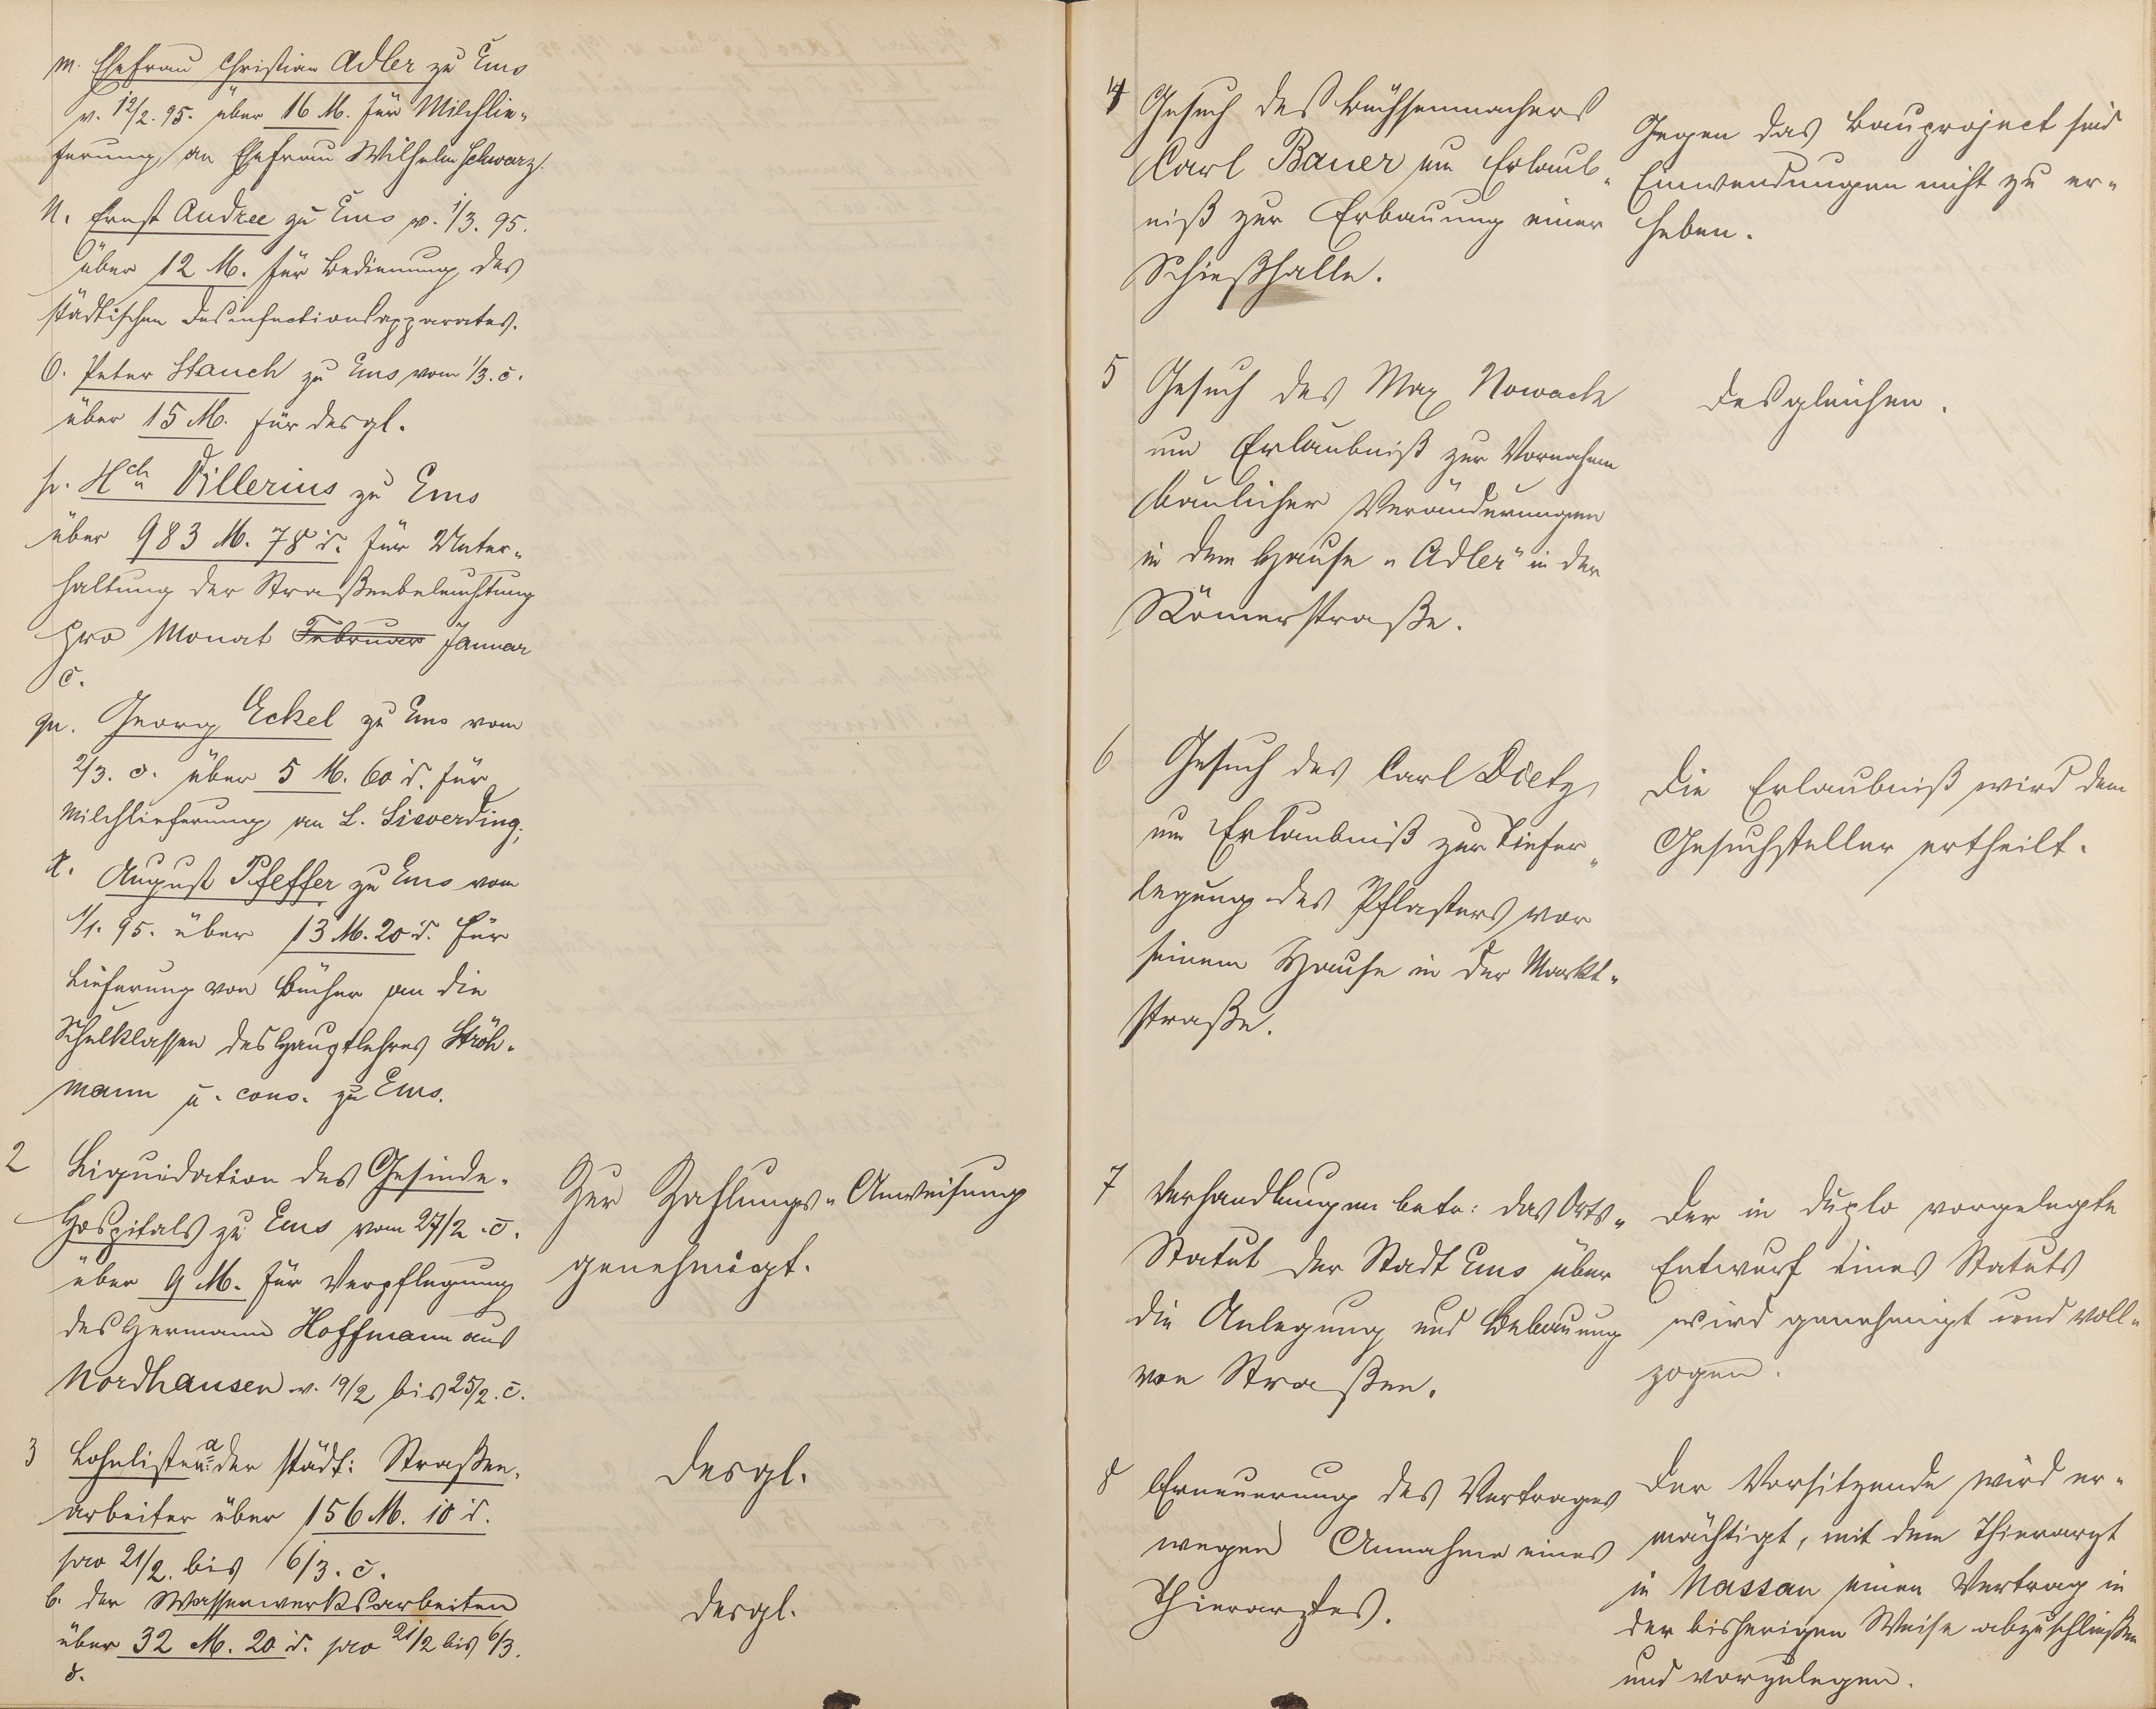 m. Ehefrau Christian Adler zu Ems
v. 12/2. 95. über 16 M. für Milchlie-
ferung an Ehefrau Wilhelm Schwarz.
n. Ernst Andree zu Ems v. 1/3. 95.
über 12 M. für Bedienung des
städtischen Desinfectionsapparates.
o. Peter Stauch zu Ems vom 1/3. c.
über 15 M. für desgl.
p. Hch Villerius zu Ems
über 983 M. 78 d. für Unter-
haltung der Straßenbeleuchtung
pro Monat Februar Januar
c.
q. Georg Eckel zu Ems vom
2/3. c. über 5 M. 60 d. für
Milchlieferung an L. Sieverding.
r. August Pfeffer zu Ems vom
1/1. 95. über 13 M. 20 d. für
Lieferung von Bücher an die
Schulklassen des Hauptlehres Ströh-
mann u. cons. zu Ems.
2 Liquidation des Gesinde-
Hospitals zu Ems vom 27/2. c.
über 9 M. für Verpflegung
des Hermann Hoffmann aus
Nordhausen v. 19/2 bis 25/2. c.
Zur Zahlungs-Anweisung
genehmigt.
3 Lohnlisten a. der städt: Straßen-
arbeiter über 156 M. 10 d.
pro 21/2. bis 6/3. c.
desgl.
b. der Wasserwerksarbeiten
über 32 M. 20 d. pro 21/2 bis 6/3.
c.
desgl.
4 Gesuch des Büchsenmachers
Carl Bauer um Erlaub-
niß zur Erbauung einer
Schießhalle.
Gegen das Bauproject sind
Einwendungen nicht zu er-
heben.
5 Gesuch des Max Nowack
um Erlaubniß zur Vornahme
baulicher Veränderungen
in dem Hause "Adler" in der
Römerstraße.
desgleichen.
6 Gesuch des Carl Dietz
um Erlaubniß zur Tiefer-
legung des Pflasters vor
seinem Hause in der Markt-
straße.
Die Erlaubniß wird dem
Gesuchsteller ertheilt.
7 Verhandlungen betr: das Orts-
Statut der Stadt Ems über
die Anlegung und Bebauung
von Straßen.
Der in duplo vorgelegte
Entwurf eines Statuts
wird genehmigt und voll-
zogen.
8 Erneuerung des Vertrages
wegen Annahme eines
Thierarztes.
Der Vorsitzende wird er-
mächtigt, mit dem Thierarzt
in Nassau einen Vertrag in
der bisherigen Weise abzuschließen
und vorzulegen.